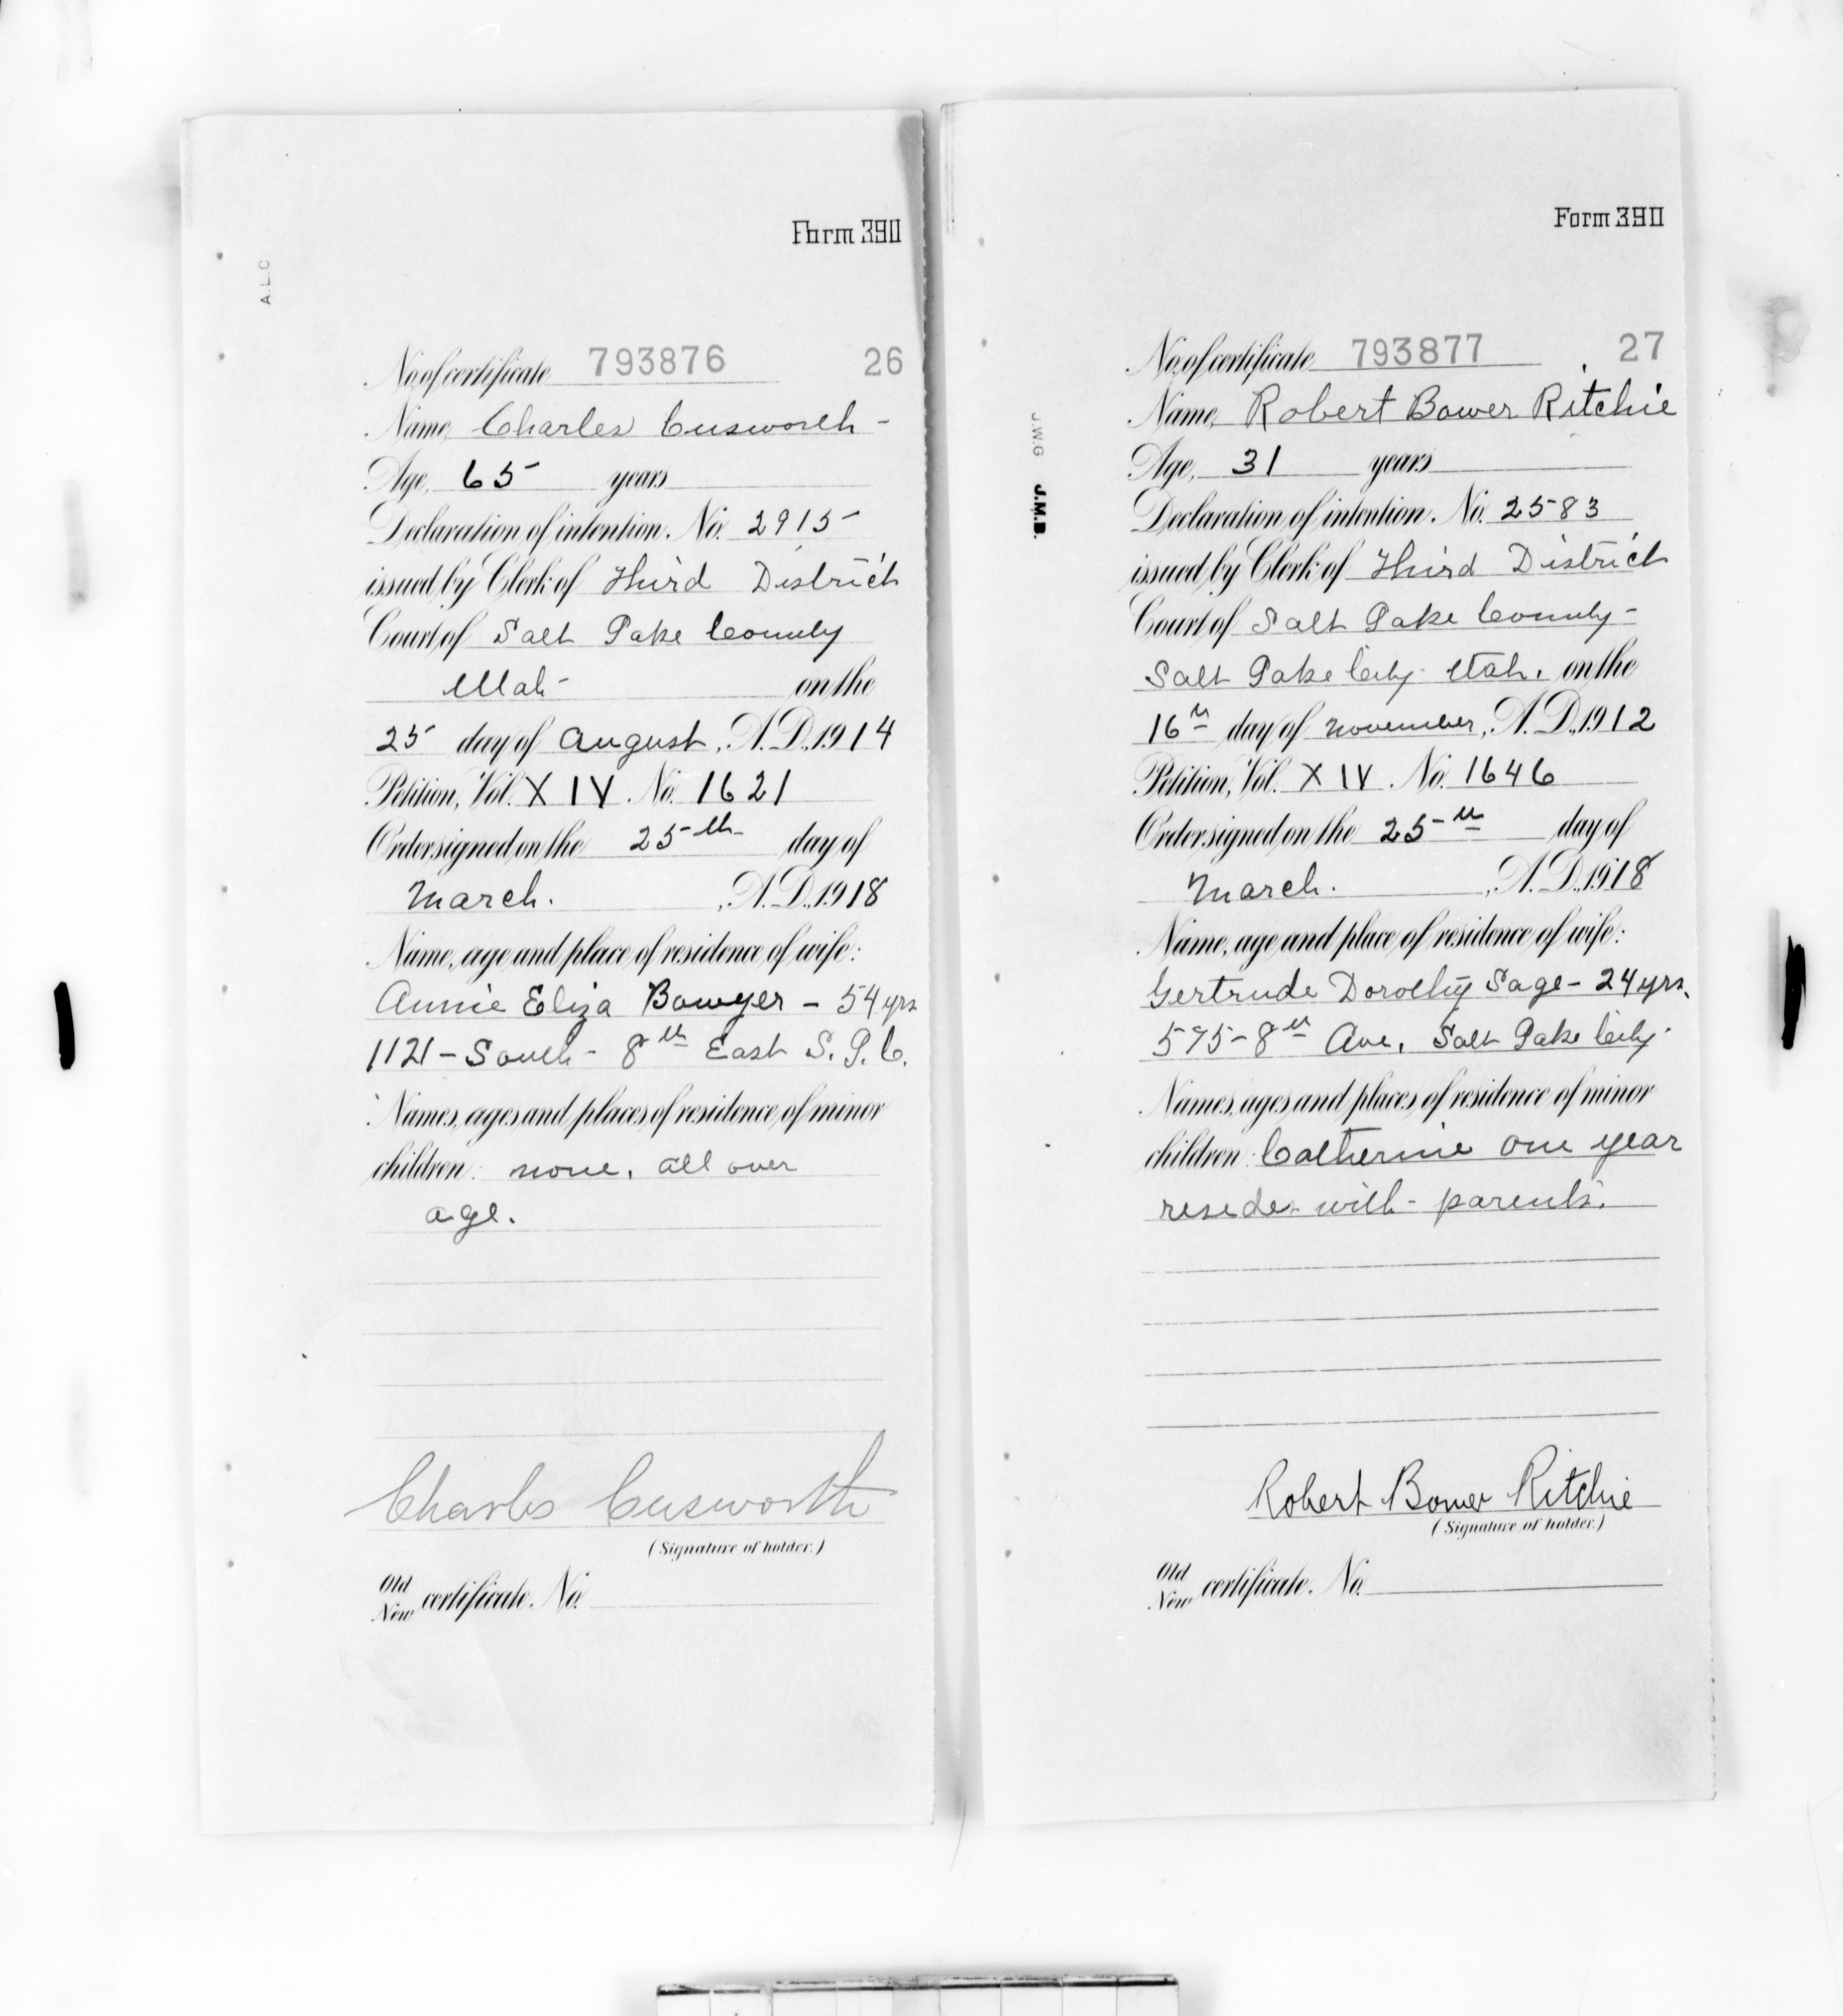 Form 390
A.L.C
No. of certificate 793876 26
Name, Charles Cusworth -
Age, 65 years
Declaration of intention, No. 2915
issued by Clerk of Third District
Court of Salt Lake County
Utah - on the
25 day of August, A.D. 1914
Petition, Vol. XIV No. 1621
Order signed on the 25th day of
March. , A.D. 1918
Name, age and place of residence of wife:
Annie Eliza Bowyer - 54 yrs
1121 - South - 8th East S. L. C.
Names, ages and places of residence of minor
children: none. all over
age.
Charles Cusworth
(Signature of holder.)
Old
New certificate, No.
Form 390
J.W.G J.M.B.
No. of certificate 793877 27
Name, Robert Bower Ritchie
Age, 31 years
Declaration of intention, No. 2583
issued by Clerk of Third District
Court of Salt Lake County -
Salt Lake City Utah. on the
16th day of November, A.D. 1912
Petition, Vol. XIV. No. 1646
Order signed on the 25th day of
March. , A.D. 1918
Name, age and place of residence of wife:
Gertrude Dorothy Sage - 24 yrs.
575 - 8th Ave. Salt Lake City
Names, ages and places of residence of minor
children: Catherine one year
resides with - parents.
Robert Bower Ritchie
(Signature of holder.)
Old
New certificate, No.